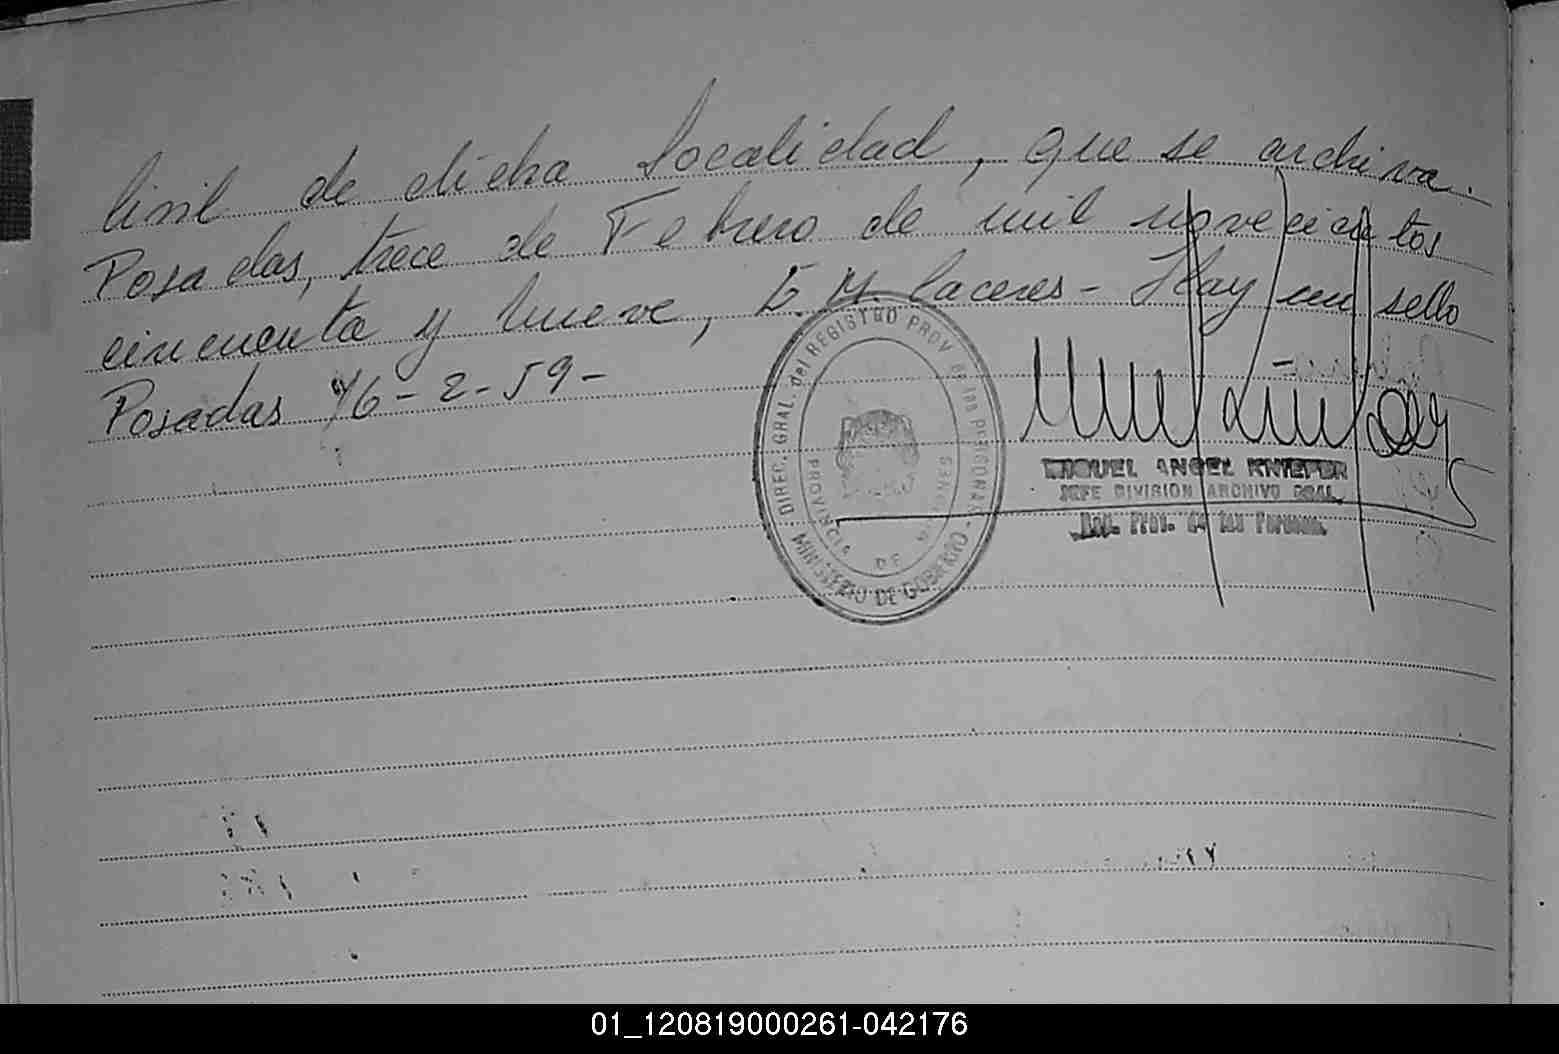 Civil de dicha localidad, que se archiva.
Posadas, trece de Febrero de mil novecientos
cincuenta y nueve, E. M. Caceres - Hay un sello
Posadas 16-2-59-
DIREC. GRAL. del REGISTRO PROV. de las PERSONAS -
MINISTERIO DE GOBIERNO
PROVINCIA DE MISIONES
MIGUEL ANGEL KNIEPER
JEFE DIVISION ARCHIVO GRAL.
Prov. de las Personas
01_120819000261-042176